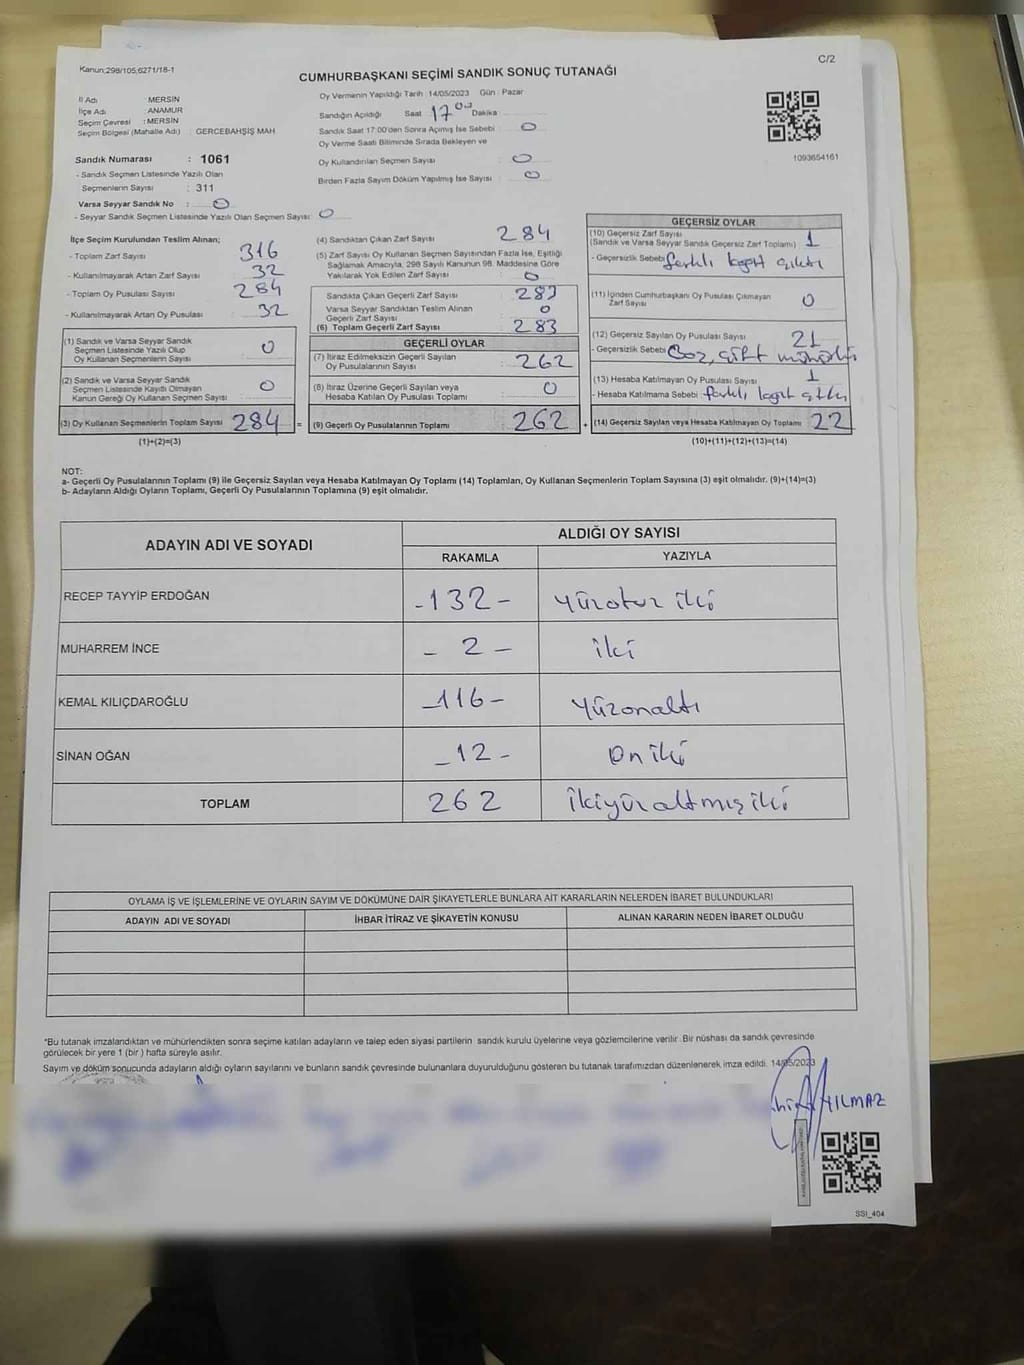 Kanun;298/105,6271/18-1
C/2
CUMHURBAŞKANI SEÇİMİ SANDIK SONUÇ TUTANAĞI
İl Adı : MERSİN
İlçe Adı : ANAMUR
Seçim Çevresi : MERSİN
Seçim Bölgesi (Mahalle Adı) : GERCEBAHŞİŞ MAH
Sandık Numarası : 1061
- Sandık Seçmen Listesinde Yazılı Olan
Seçmenlerin Sayısı : 311
Varsa Seyyar Sandık No : 0
- Seyyar Sandık Seçmen Listesinde Yazılı Olan Seçmen Sayısı: 0
Oy Vermenin Yapıldığı Tarih : 14/05/2023 Gün : Pazar
Sandığın Açıldığı Saat 17 00 Dakika
Sandık Saat 17:00'den Sonra Açımış İse Sebebi : 0
Oy Verme Saati Bitiminde Sırada Bekleyen ve
Oy Kullandırılan Seçmen Sayısı : 0
Birden Fazla Sayım Döküm Yapılmış İse Sayısı : 0
1093654161
İlçe Seçim Kurulundan Teslim Alınan;
- Toplam Zarf Sayısı : 316
- Kullanılmayarak Artan Zarf Sayısı : 32
- Toplam Oy Pusulası Sayısı : 284
- Kullanılmayarak Artan Oy Pusulası : 32
(1) Sandık ve Varsa Seyyar Sandık
Seçmen Listesinde Yazılı Olup
Oy Kullanan Seçmenlerin Sayısı : 0
(2) Sandık ve Varsa Seyyar Sandık
Seçmen Listesinde Kayıtlı Olmayan
Kanun Gereği Oy Kullanan Seçmen Sayısı : 0
(3) Oy Kullanan Seçmenlerin Toplam Sayısı : 284 =
(1)+(2)=(3)
(4) Sandıktan Çıkan Zarf Sayısı : 284
(5) Zarf Sayısı Oy Kullanan Seçmen Sayısından Fazla İse, Eşitliği
Sağlamak Amacıyla, 298 Sayılı Kanunun 98. Maddesine Göre
Yakılarak Yok Edilen Zarf Sayısı : 0
Sandıkta Çıkan Geçerli Zarf Sayısı : 283
Varsa Seyyar Sandıktan Teslim Alınan
Geçerli Zarf Sayısı : 0
(6) Toplam Geçerli Zarf Sayısı : 283
GEÇERLİ OYLAR
(7) İtiraz Edilmeksizin Geçerli Sayılan
Oy Pusulalarının Sayısı : 262
(8) İtiraz Üzerine Geçerli Sayılan veya
Hesaba Katılan Oy Pusulası Toplamı : 0
(9) Geçerli Oy Pusulalarının Toplamı : 262 +
GEÇERSİZ OYLAR
(10) Geçersiz Zarf Sayısı
(Sandık ve Varsa Seyyar Sandık Geçersiz Zarf Toplamı) : 1
- Geçersizlik Sebebi : farklı kağıt çıktı
(11) İçinden Cumhurbaşkanı Oy Pusulası Çıkmayan
Zarf Sayısı : 0
(12) Geçersiz Sayılan Oy Pusulası Sayısı : 21
- Geçersizlik Sebebi : Boz, çift mühürlü
(13) Hesaba Katılmayan Oy Pusulası Sayısı : 1
- Hesaba Katılmama Sebebi : farklı kağıt çıktı
(14) Geçersiz Sayılan veya Hesaba Katılmayan Oy Toplamı : 22
(10)+(11)+(12)+(13)=(14)
NOT:
a- Geçerli Oy Pusulalarının Toplamı (9) ile Geçersiz Sayılan veya Hesaba Katılmayan Oy Toplamı (14) Toplamları, Oy Kullanan Seçmenlerin Toplam Sayısına (3) eşit olmalıdır. (9)+(14)=(3)
b- Adayların Aldığı Oyların Toplamı, Geçerli Oy Pusulalarının Toplamına (9) eşit olmalıdır.
ADAYIN ADI VE SOYADI
ALDIĞI OY SAYISI
RAKAMLA YAZIYLA
RECEP TAYYİP ERDOĞAN -132- Yüzotuz iki
MUHARREM İNCE - 2 - iki
KEMAL KILIÇDAROĞLU -116- Yüzonaltı
SİNAN OĞAN -12- On iki
TOPLAM 262 İkiyüzaltmış iki
OYLAMA İŞ VE İŞLEMLERİNE VE OYLARIN SAYIM VE DÖKÜMÜNE DAİR ŞİKAYETLERLE BUNLARA AİT KARARLARIN NELERDEN İBARET BULUNDUKLARI
ADAYIN ADI VE SOYADI İHBAR İTİRAZ VE ŞİKAYETİN KONUSU ALINAN KARARIN NEDEN İBARET OLDUĞU
*Bu tutanak imzalandıktan ve mühürlendikten sonra seçime katılan adayların ve talep eden siyasi partilerin sandık kurulu üyelerine veya gözlemcilerine verilir. Bir nüshası da sandık çevresinde
görülecek bir yere 1 (bir) hafta süreyle asılır.
Sayım ve döküm sonucunda adayların aldığı oyların sayılarını ve bunların sandık çevresinde bulunanlara duyurulduğunu gösteren bu tutanak tarafımızdan düzenlenerek imza edildi. 14/05/2023
YILMAZ
SSI_404